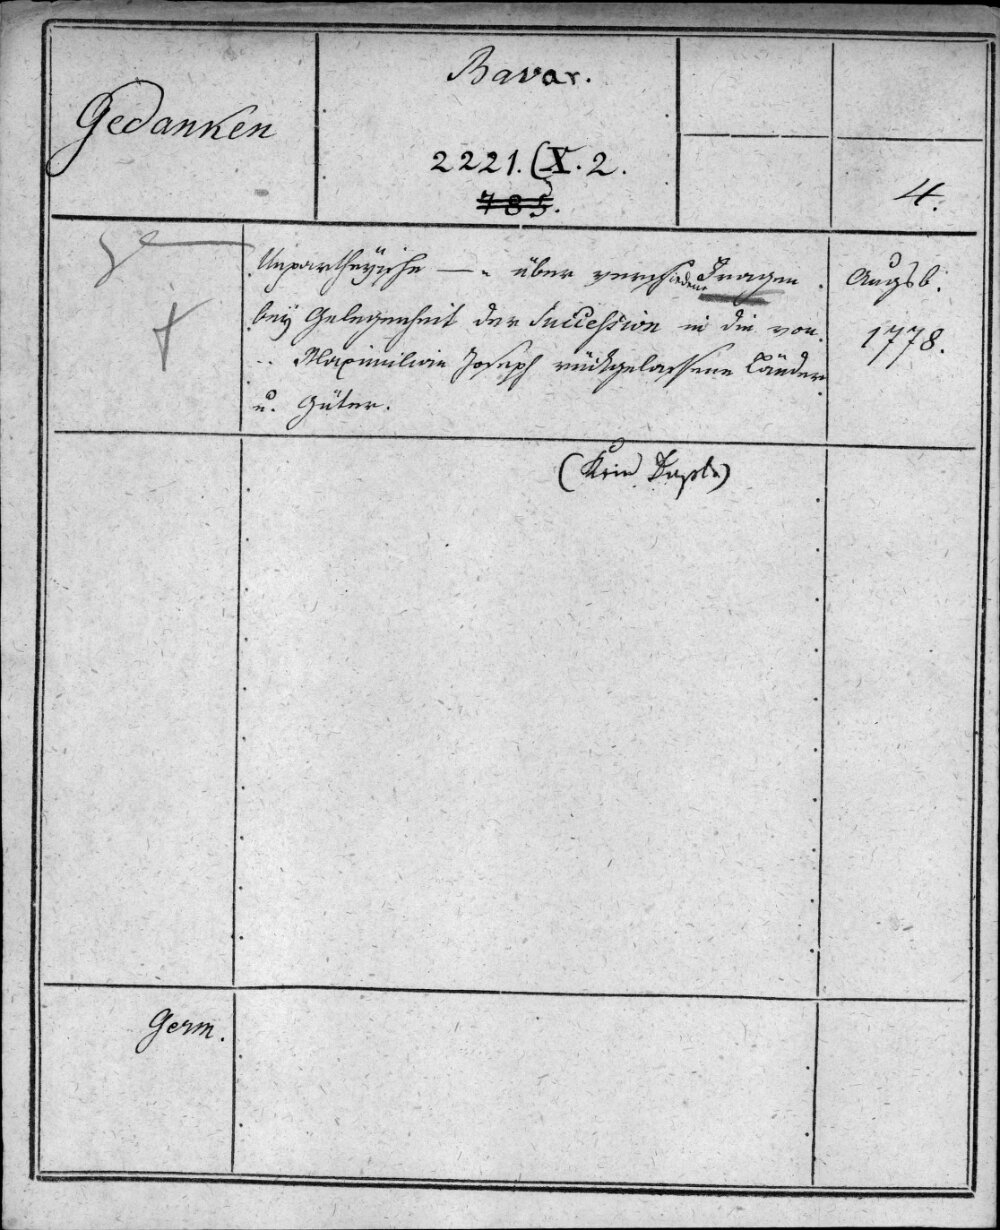 Gedanken
Bavar.
2221. (X. 2.
785.
4.
Unpartheyische — „ über verschiedene Fragen
bey Gelegenheit der Succession in die von
.. Maximilian Joseph rückgelassene Länder
u. Güter.
Augsb.
1778.
(Kein Duplt.)
Germ.